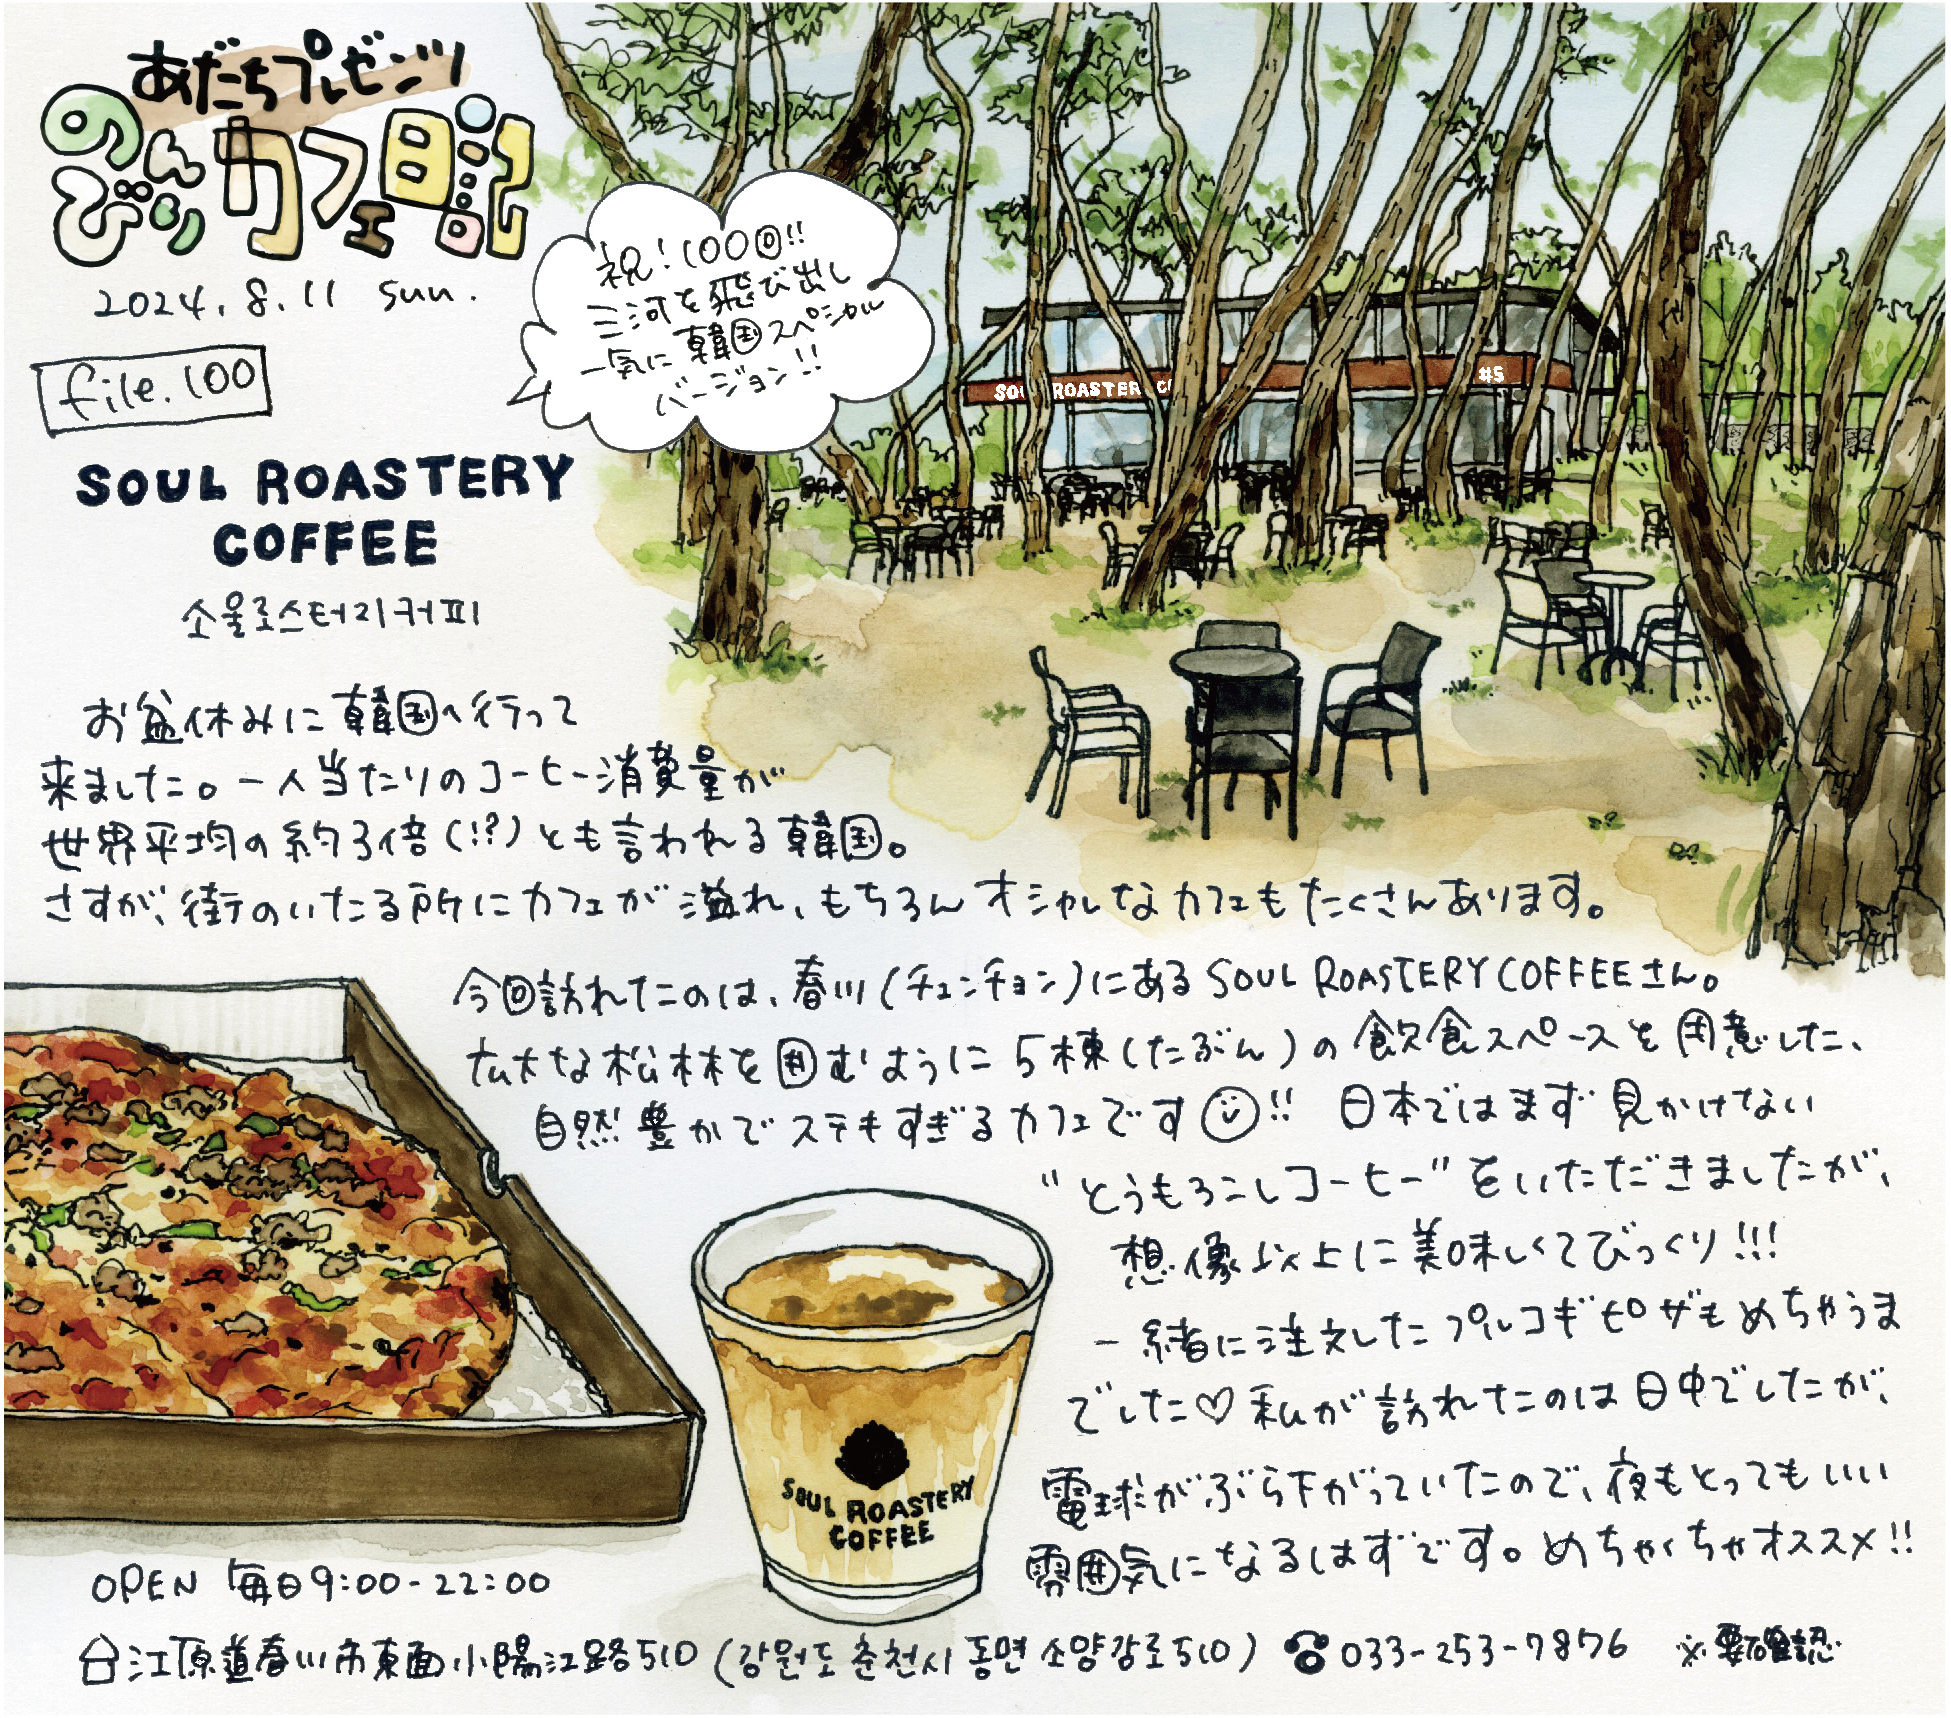 あだちプレゼンツ
のんびりカフェ日記
2024.8.11 sun.
file.100
祝！100回!!
三河を飛び出し
一気に韓国スペシャル
バージョン!!
SOUL ROASTERY
COFFEE
소울로스터리커피
SOUL ROASTER CO
#5
お盆休みに韓国へ行って
来ました。一人当たりのコーヒー消費量が
世界平均の約3倍(!?)とも言われる韓国。
さすが、街のいたる所にカフェが溢れ、もちろんオシャレなカフェもたくさんあります。
今回訪れたのは、春川(チュンチョン)にあるSOUL ROASTERY COFFEEさん。
広大な松林を囲むように5棟(たぶん)の飲食スペースを用意した、
自然豊かでステキすぎるカフェです!! 日本ではまず見かけない
"とうもろこしコーヒー"をいただきましたが、
想像以上に美味しくてびっくり!!!
一緒に注文したプルコギピザもめちゃうま
でした♡私が訪れたのは日中でしたが、
電球がぶら下がっていたので、夜もとってもいい
雰囲気になるはずです。めちゃくちゃオススメ!!
SOUL ROASTERY
COFFEE
OPEN 毎日9:00-22:00
江原道春川市東面小陽江路510(강원도 춘천시 동면 소양강로510) ☎033-253-7876 ※要確認